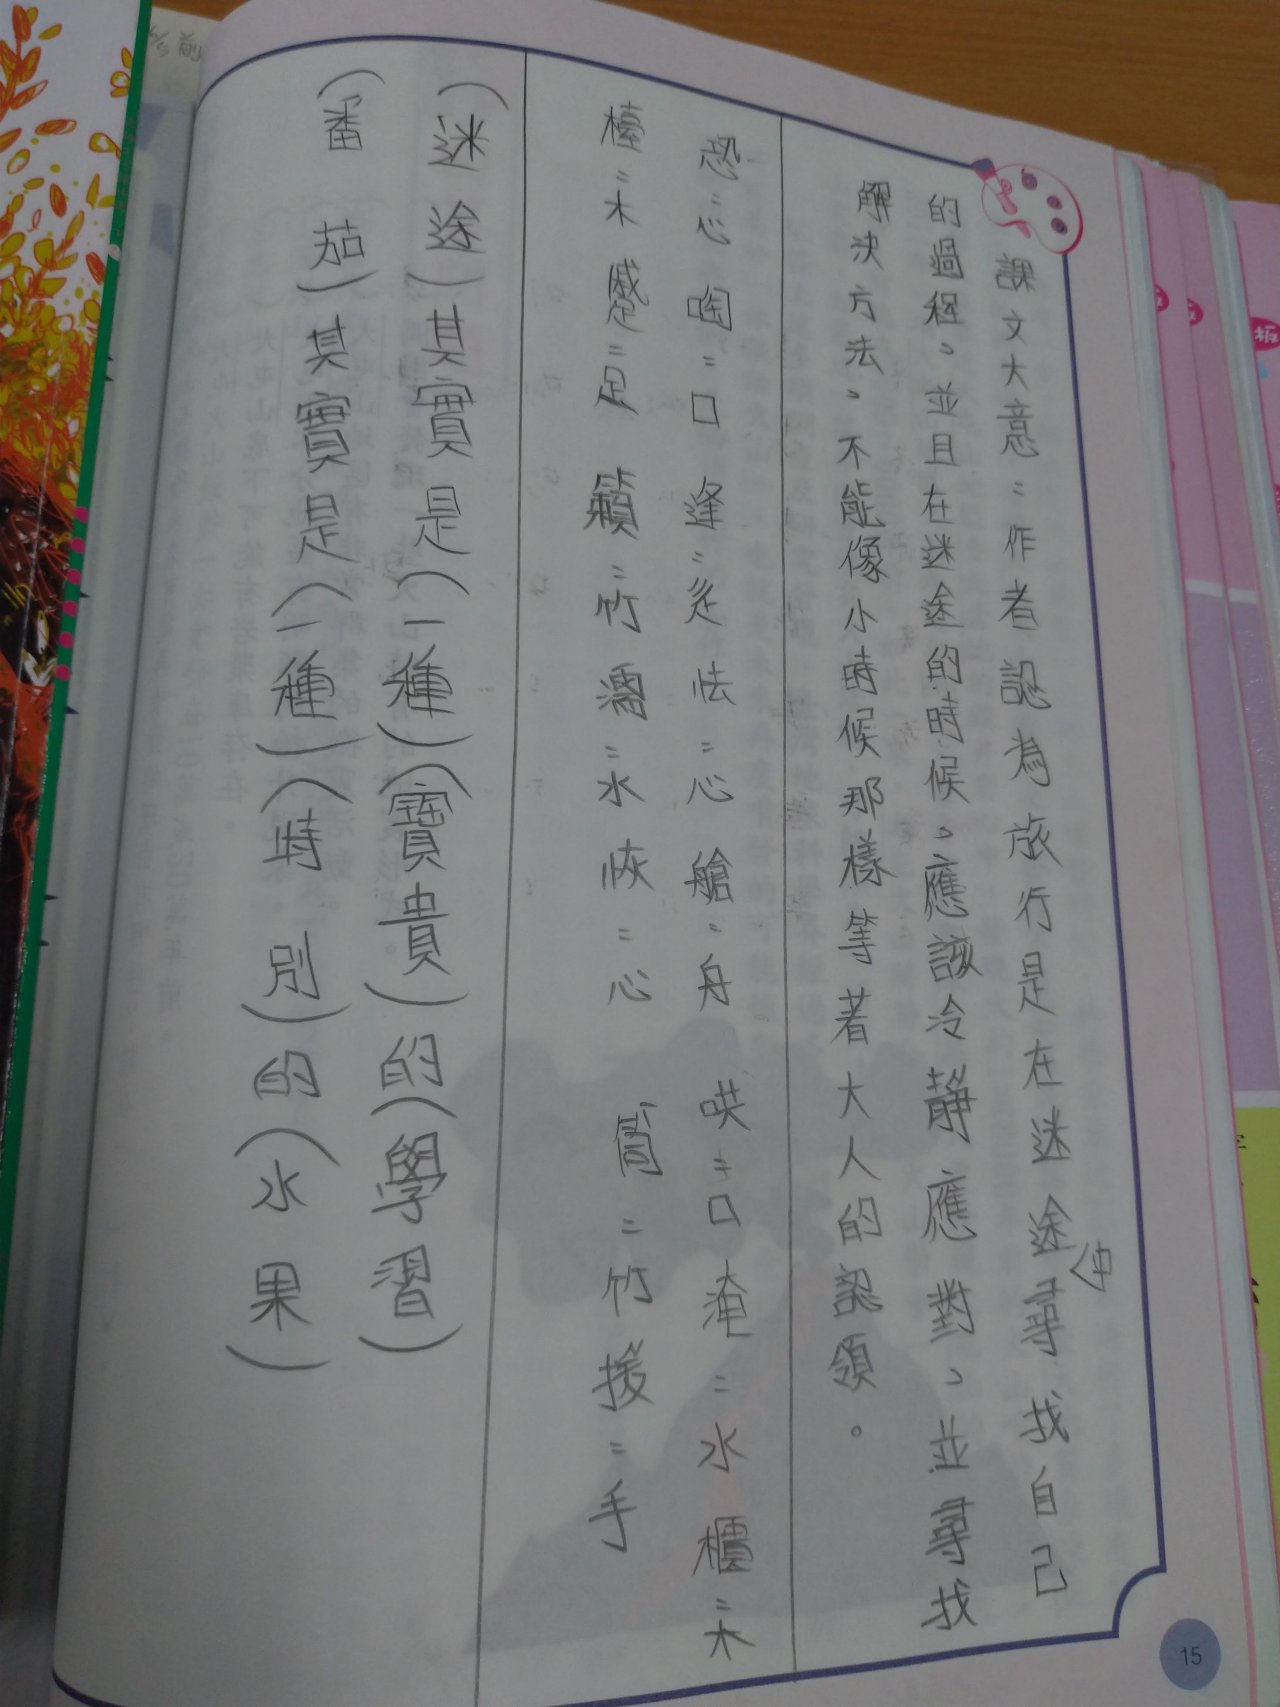 課文大意：作者認為旅行是在迷途中尋找自己
的過程，並且在迷途的時候，應該冷靜應對，並尋找
解決方法，不能像小時候那樣等著大人的認領。
恐：心 啕：口 逢：辵 怯：心 艙：舟 哄：口 淹：水 櫃：木
檯：木 蹙：足 籟：竹 濡：水 恢：心 筒：竹 援：手
（迷途）其實是（一種）（寶貴）的（學習）
（番茄）其實是（一種）（特別）的（水果）
15